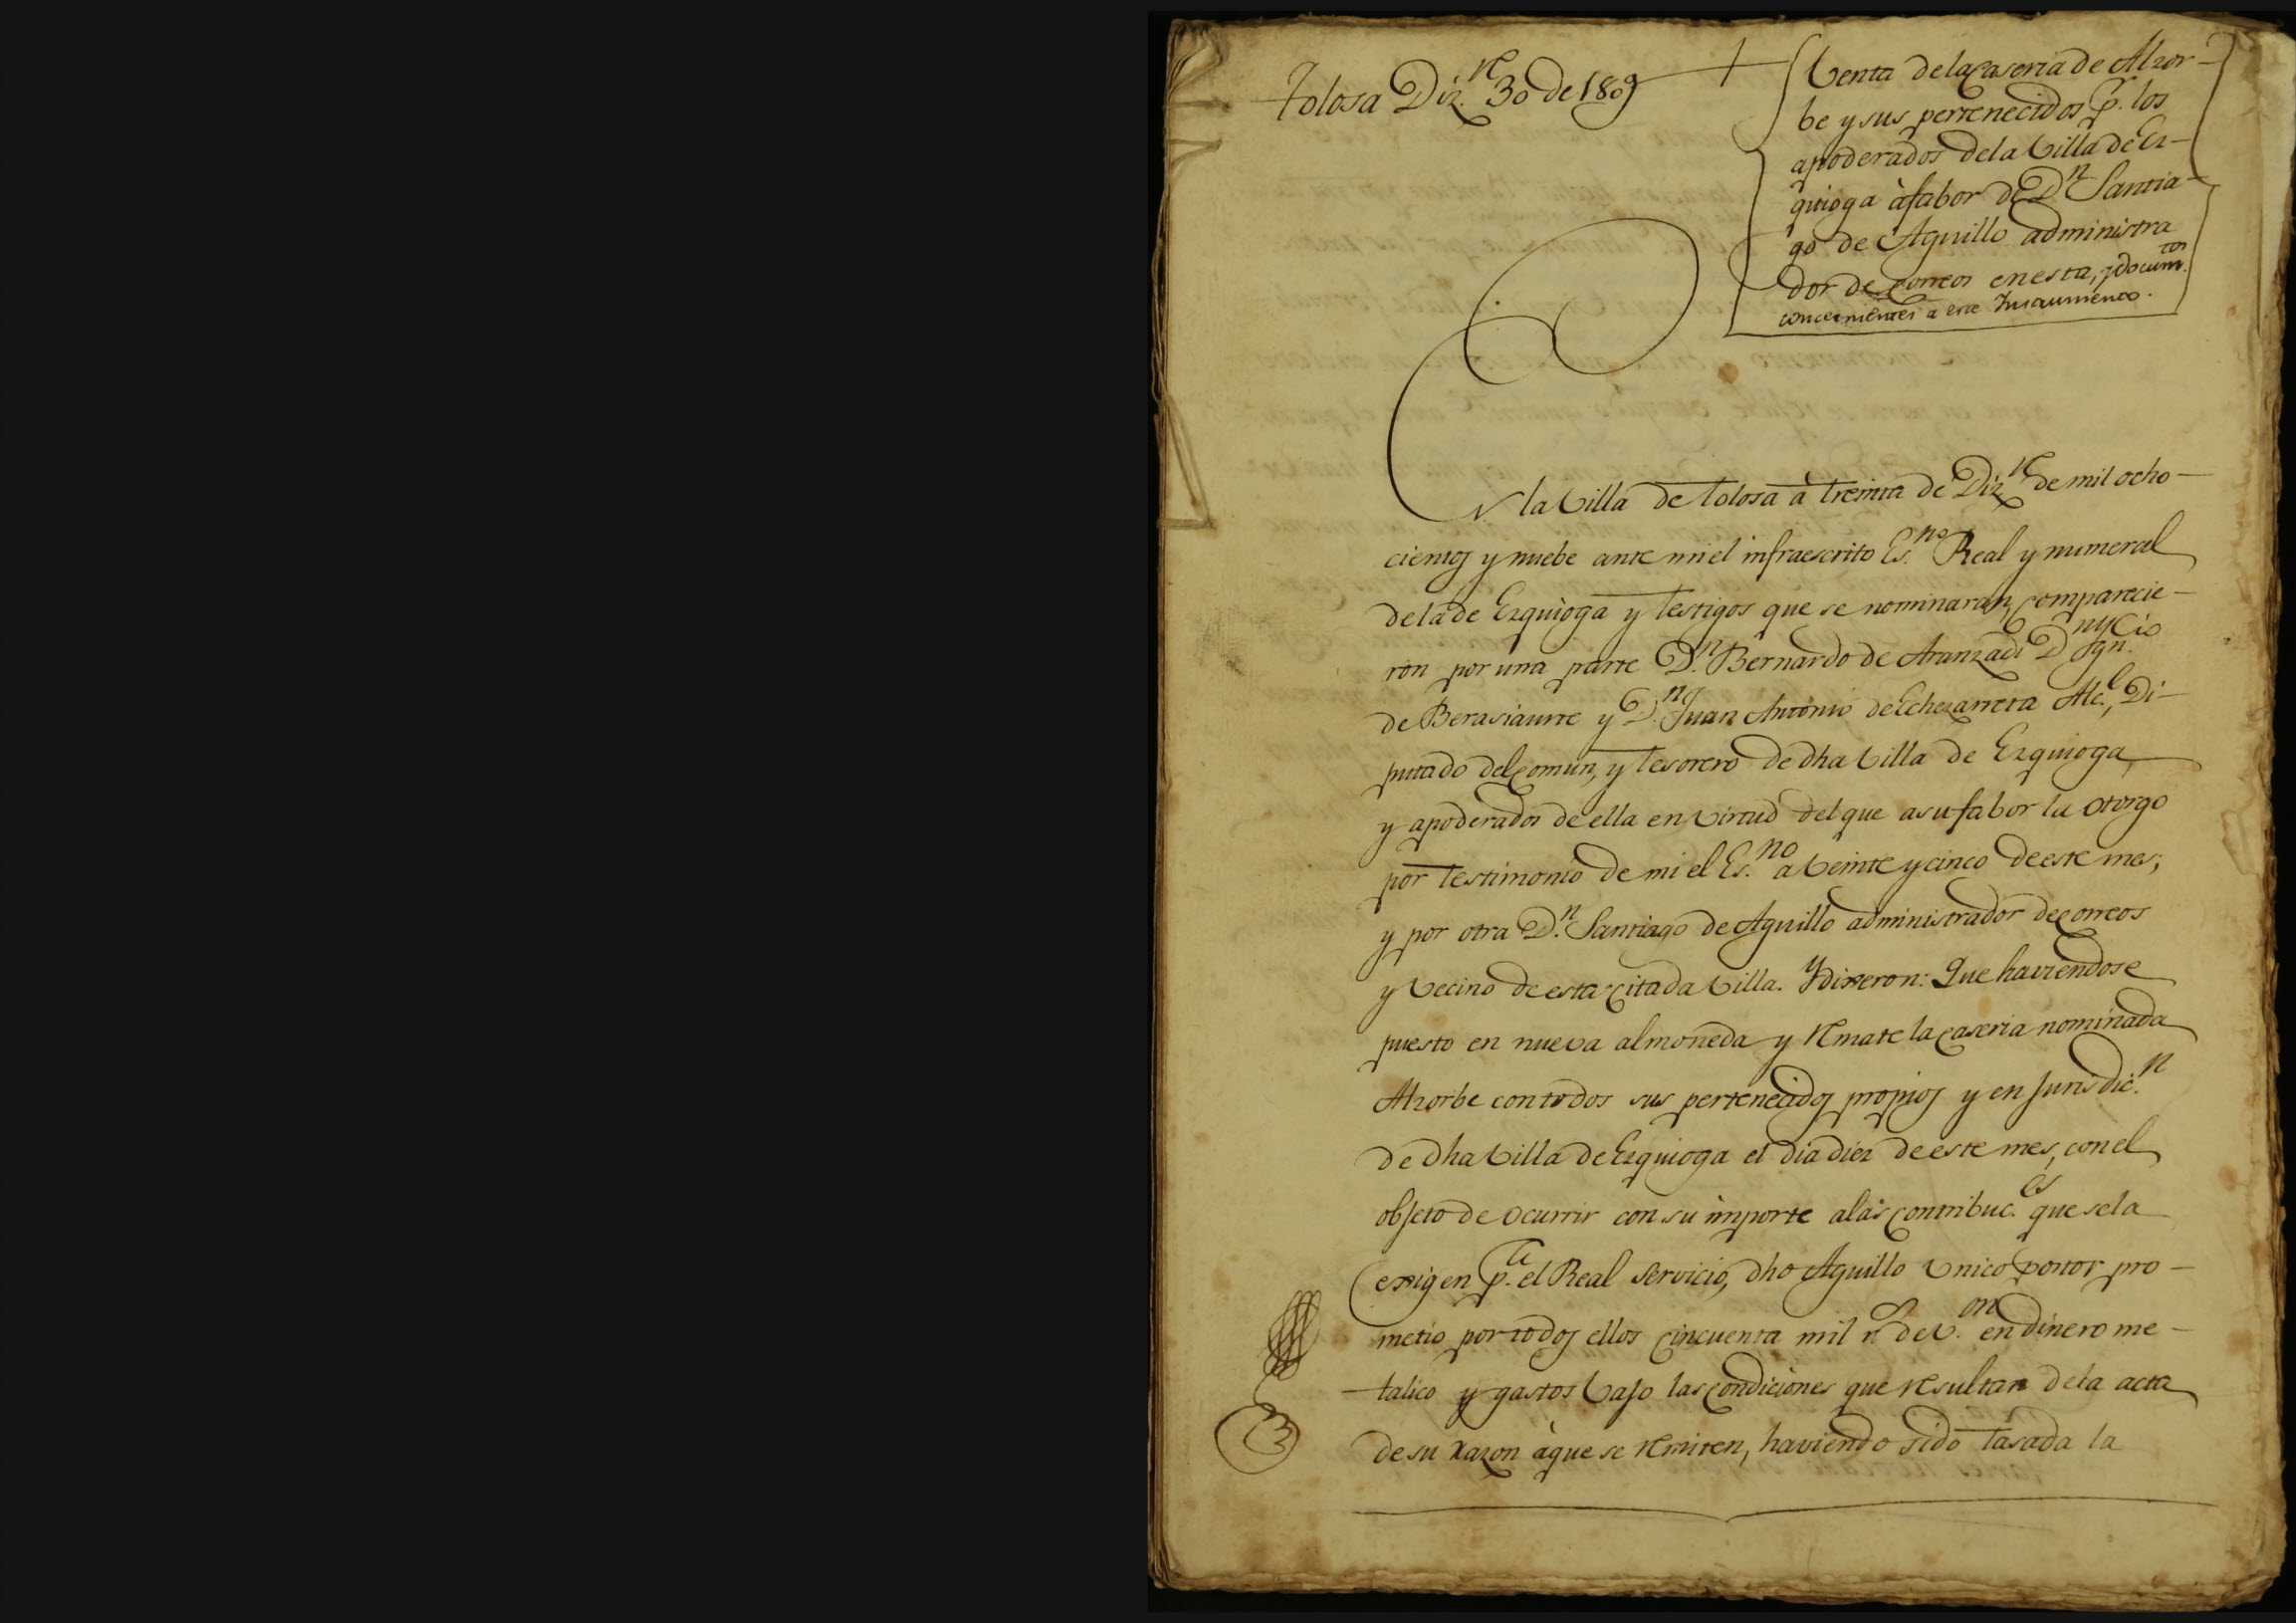 Tolosa Diz.re 30 de 1809
Venta de la Caseria de Alzor-
be y sus pertenecidos p.r los
apoderados de la Villa de Ez-
quioga à fabor de D.n Santia-
go de Aguillo administra
dor de Correos en esta, y docum.tos
concernientes a este Instrumento.
En la Villa de Tolosa à treinta de Diz.re de mil ocho-
cientos y nuebe ante mi el infraescrito Es.no Real y numeral
de la de Ezquioga y testigos que se nominaran, comparecie-
ron por una parte D.n Bernardo de Aranzadi D.n Ygn.cio
de Berasiartte y D.n Juan Antonio de Echezarreta Alc.e, Di-
putado del Comun, y Tesorero de dha Villa de Ezquioga,
y apoderados de ella en virtud del que a su fabor la otorgo
por testimonio de mi el Es.no a veinte y cinco de este mes;
y por otra D.n Santiago de Aguillo administrador de Correos
y Vecino de esta citada Villa. Y dixeron: Que haviendose
puesto en nueva almoneda y remate la Caseria nominada
Alzorbe con todos sus pertenecidos propios y en Jurisdic.n
de dha Villa de Ezquioga el dia diez de este mes, con el
objeto de ocurrir con su importe a las Contribuc.es que se la
exigen p.a el Real Servicio, dho Aguillo Unico Postor pro-
metio por todos ellos Cincuenta mil r.s de V.on en dinero me-
talico y gastos bajo las Condiciones que resultan de la acta
de su razon à que se remiten, haviendo sido tasada la